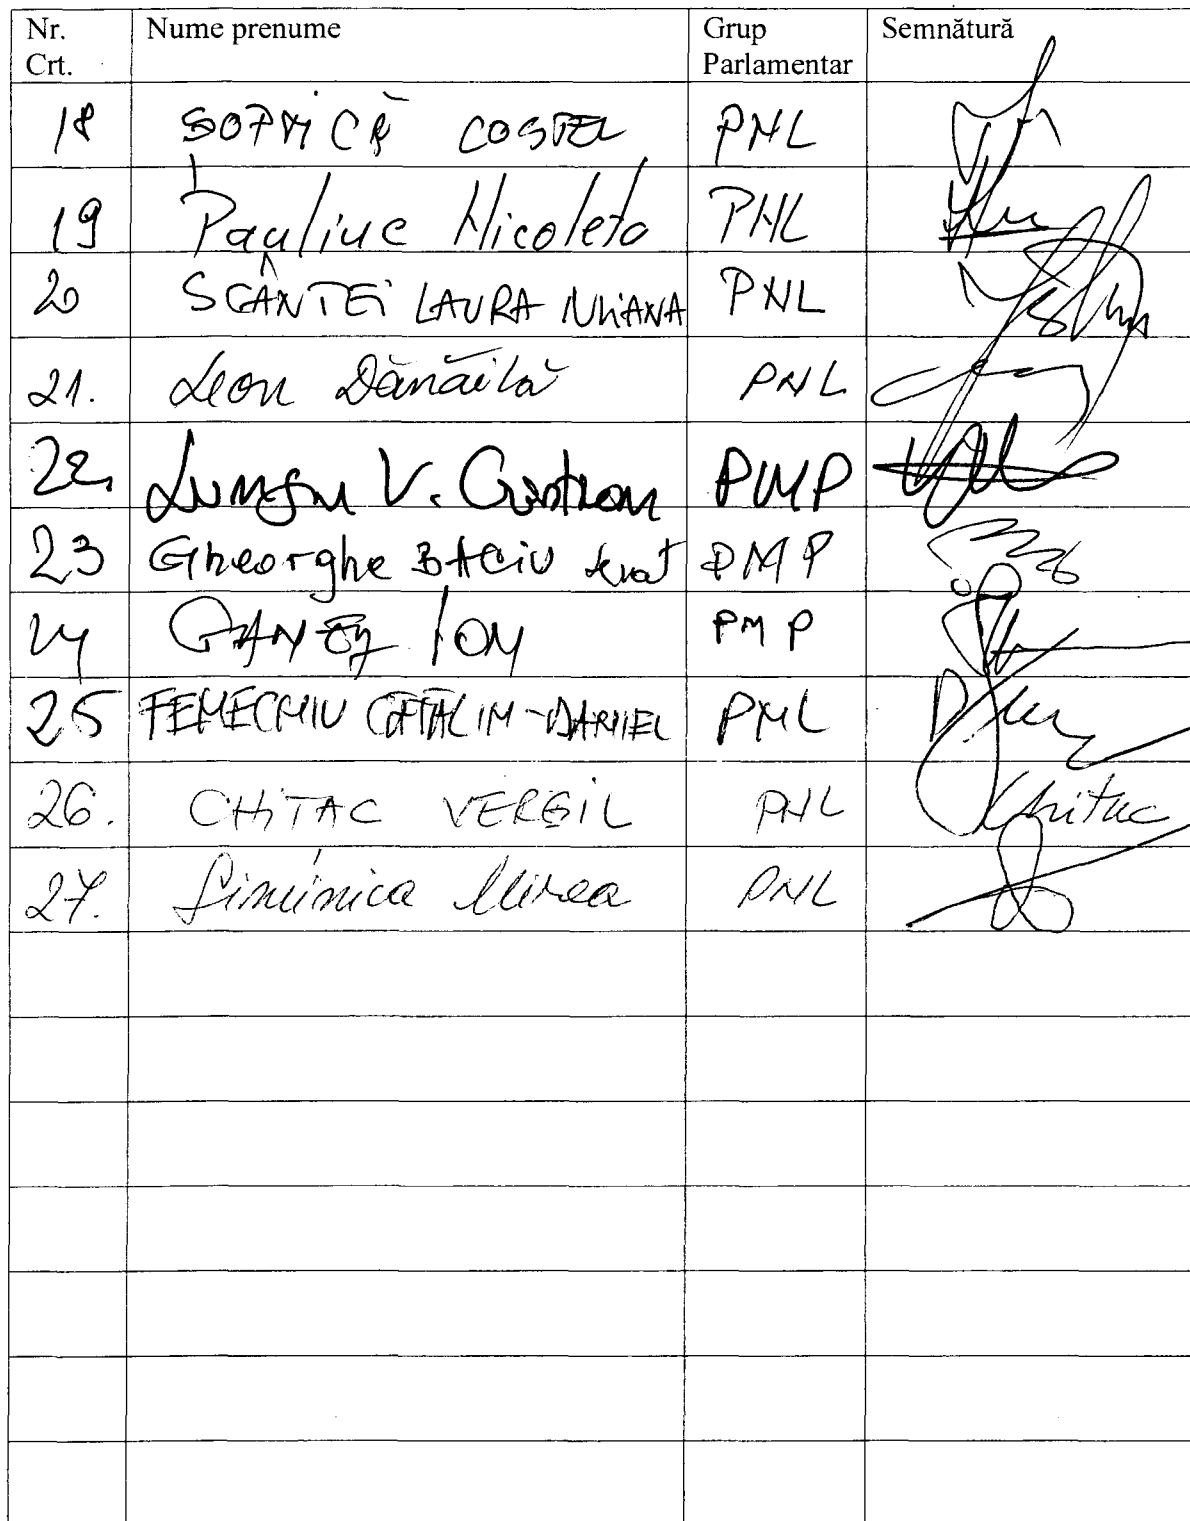 Nr. Crt. Nume prenume Grup Parlamentar Semnătură
18 ȘOPTICĂ COSTEL PNL
19 Pauliuc Nicoleta PNL
20 SCÂNTEI LAURA IULIANA PNL
21. Leon Dănăilă PNL
22. Lungu V. Cristian PMP
23 Gheorghe BACIU PMP
24 GANEȚ ION PMP
25 FENECHIU CĂTĂLIN-DANIEL PNL
26. CHIȚAC VERGIL PNL Chitac
27. Siminica Mirea PNL